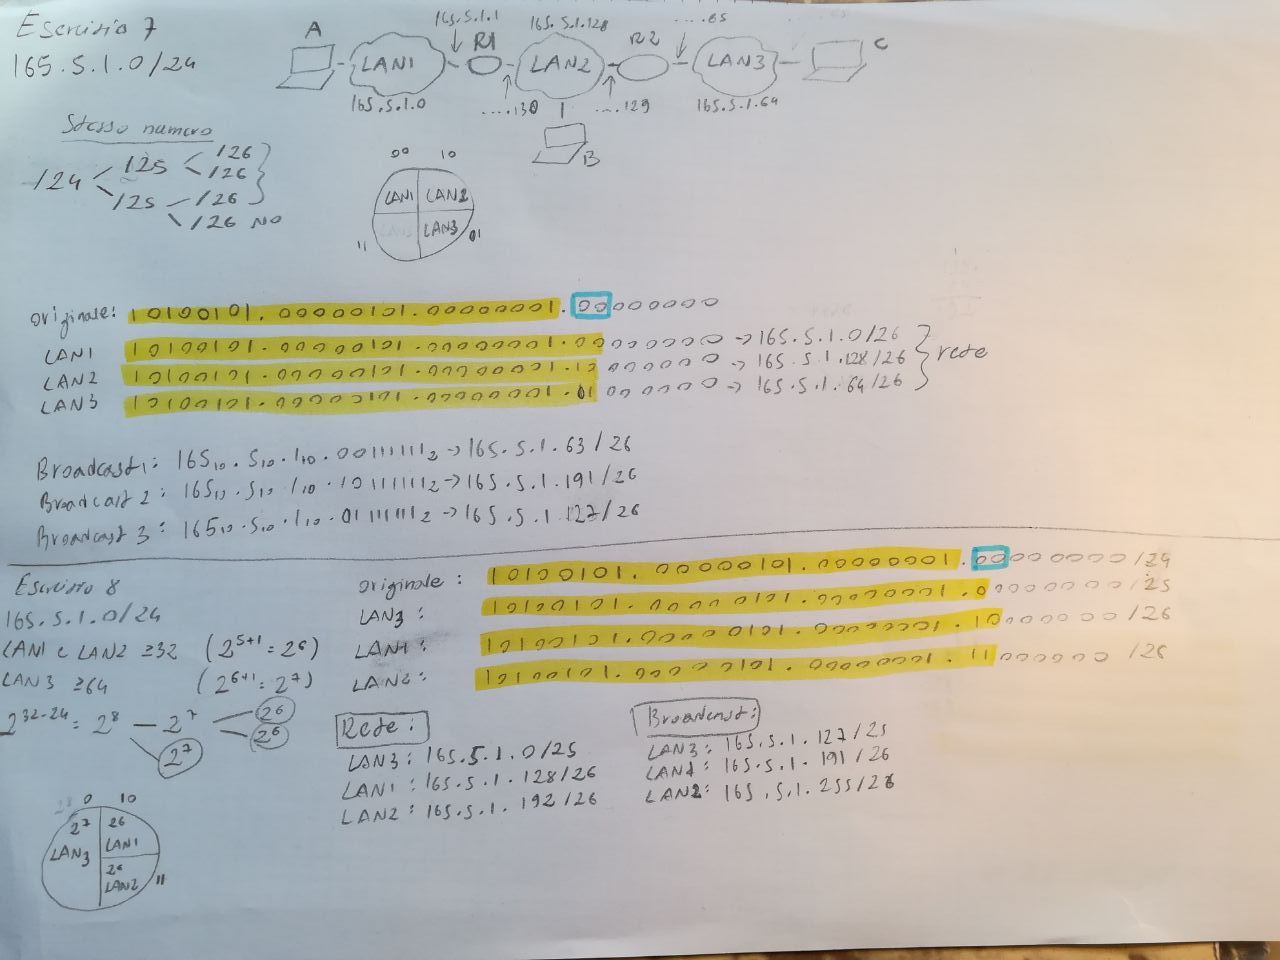 Esercizio 7
165.5.1.0/24
A
165.5.1.1
R1
165.5.1.128
R2
.....65
C
LAN1
LAN2
LAN3
165.5.1.0
.....130
.....129
165.5.1.64
B
Stesso numero
/24
/25
/26
/26
/25
/26
/26 NO
00
10
LAN1
LAN2
LAN3
11
01
originale: 10100101.00000101.00000001.00000000
LAN1 10100101.00000101.00000001.00000000 → 165.5.1.0/26
LAN2 10100101.00000101.00000001.10000000 → 165.5.1.128/26
LAN3 10100101.00000101.00000001.01000000 → 165.5.1.64/26
rete
Broadcast1: 165₁₀.5₁₀.1₁₀.00111111₂ → 165.5.1.63/26
Broadcast 2: 165₁₀.5₁₀.1₁₀.10111111₂ → 165.5.1.191/26
Broadcast 3: 165₁₀.5₁₀.1₁₀.01111111₂ → 165.5.1.127/26
Esercizio 8
165.5.1.0/24
LAN1 e LAN2 ≥32 (2⁵⁺¹=2⁶)
LAN3 ≥64 (2⁶⁺¹=2⁷)
2³²⁻²⁴=2⁸
2⁷
2⁶
2⁶
2⁷
originale: 10100101.00000101.00000001.00000000/24
LAN3: 10100101.00000101.00000001.00000000/25
LAN1: 10100101.00000101.00000001.10000000/26
LAN2: 10100101.00000101.00000001.11000000/26
Rete:
LAN3: 165.5.1.0/25
LAN1: 165.5.1.128/26
LAN2: 165.5.1.192/26
Broadcast:
LAN3: 165.5.1.127/25
LAN1: 165.5.1.191/26
LAN2: 165.5.1.255/26
0
10
2⁷
LAN3
2⁶
LAN1
2⁶
LAN2
11